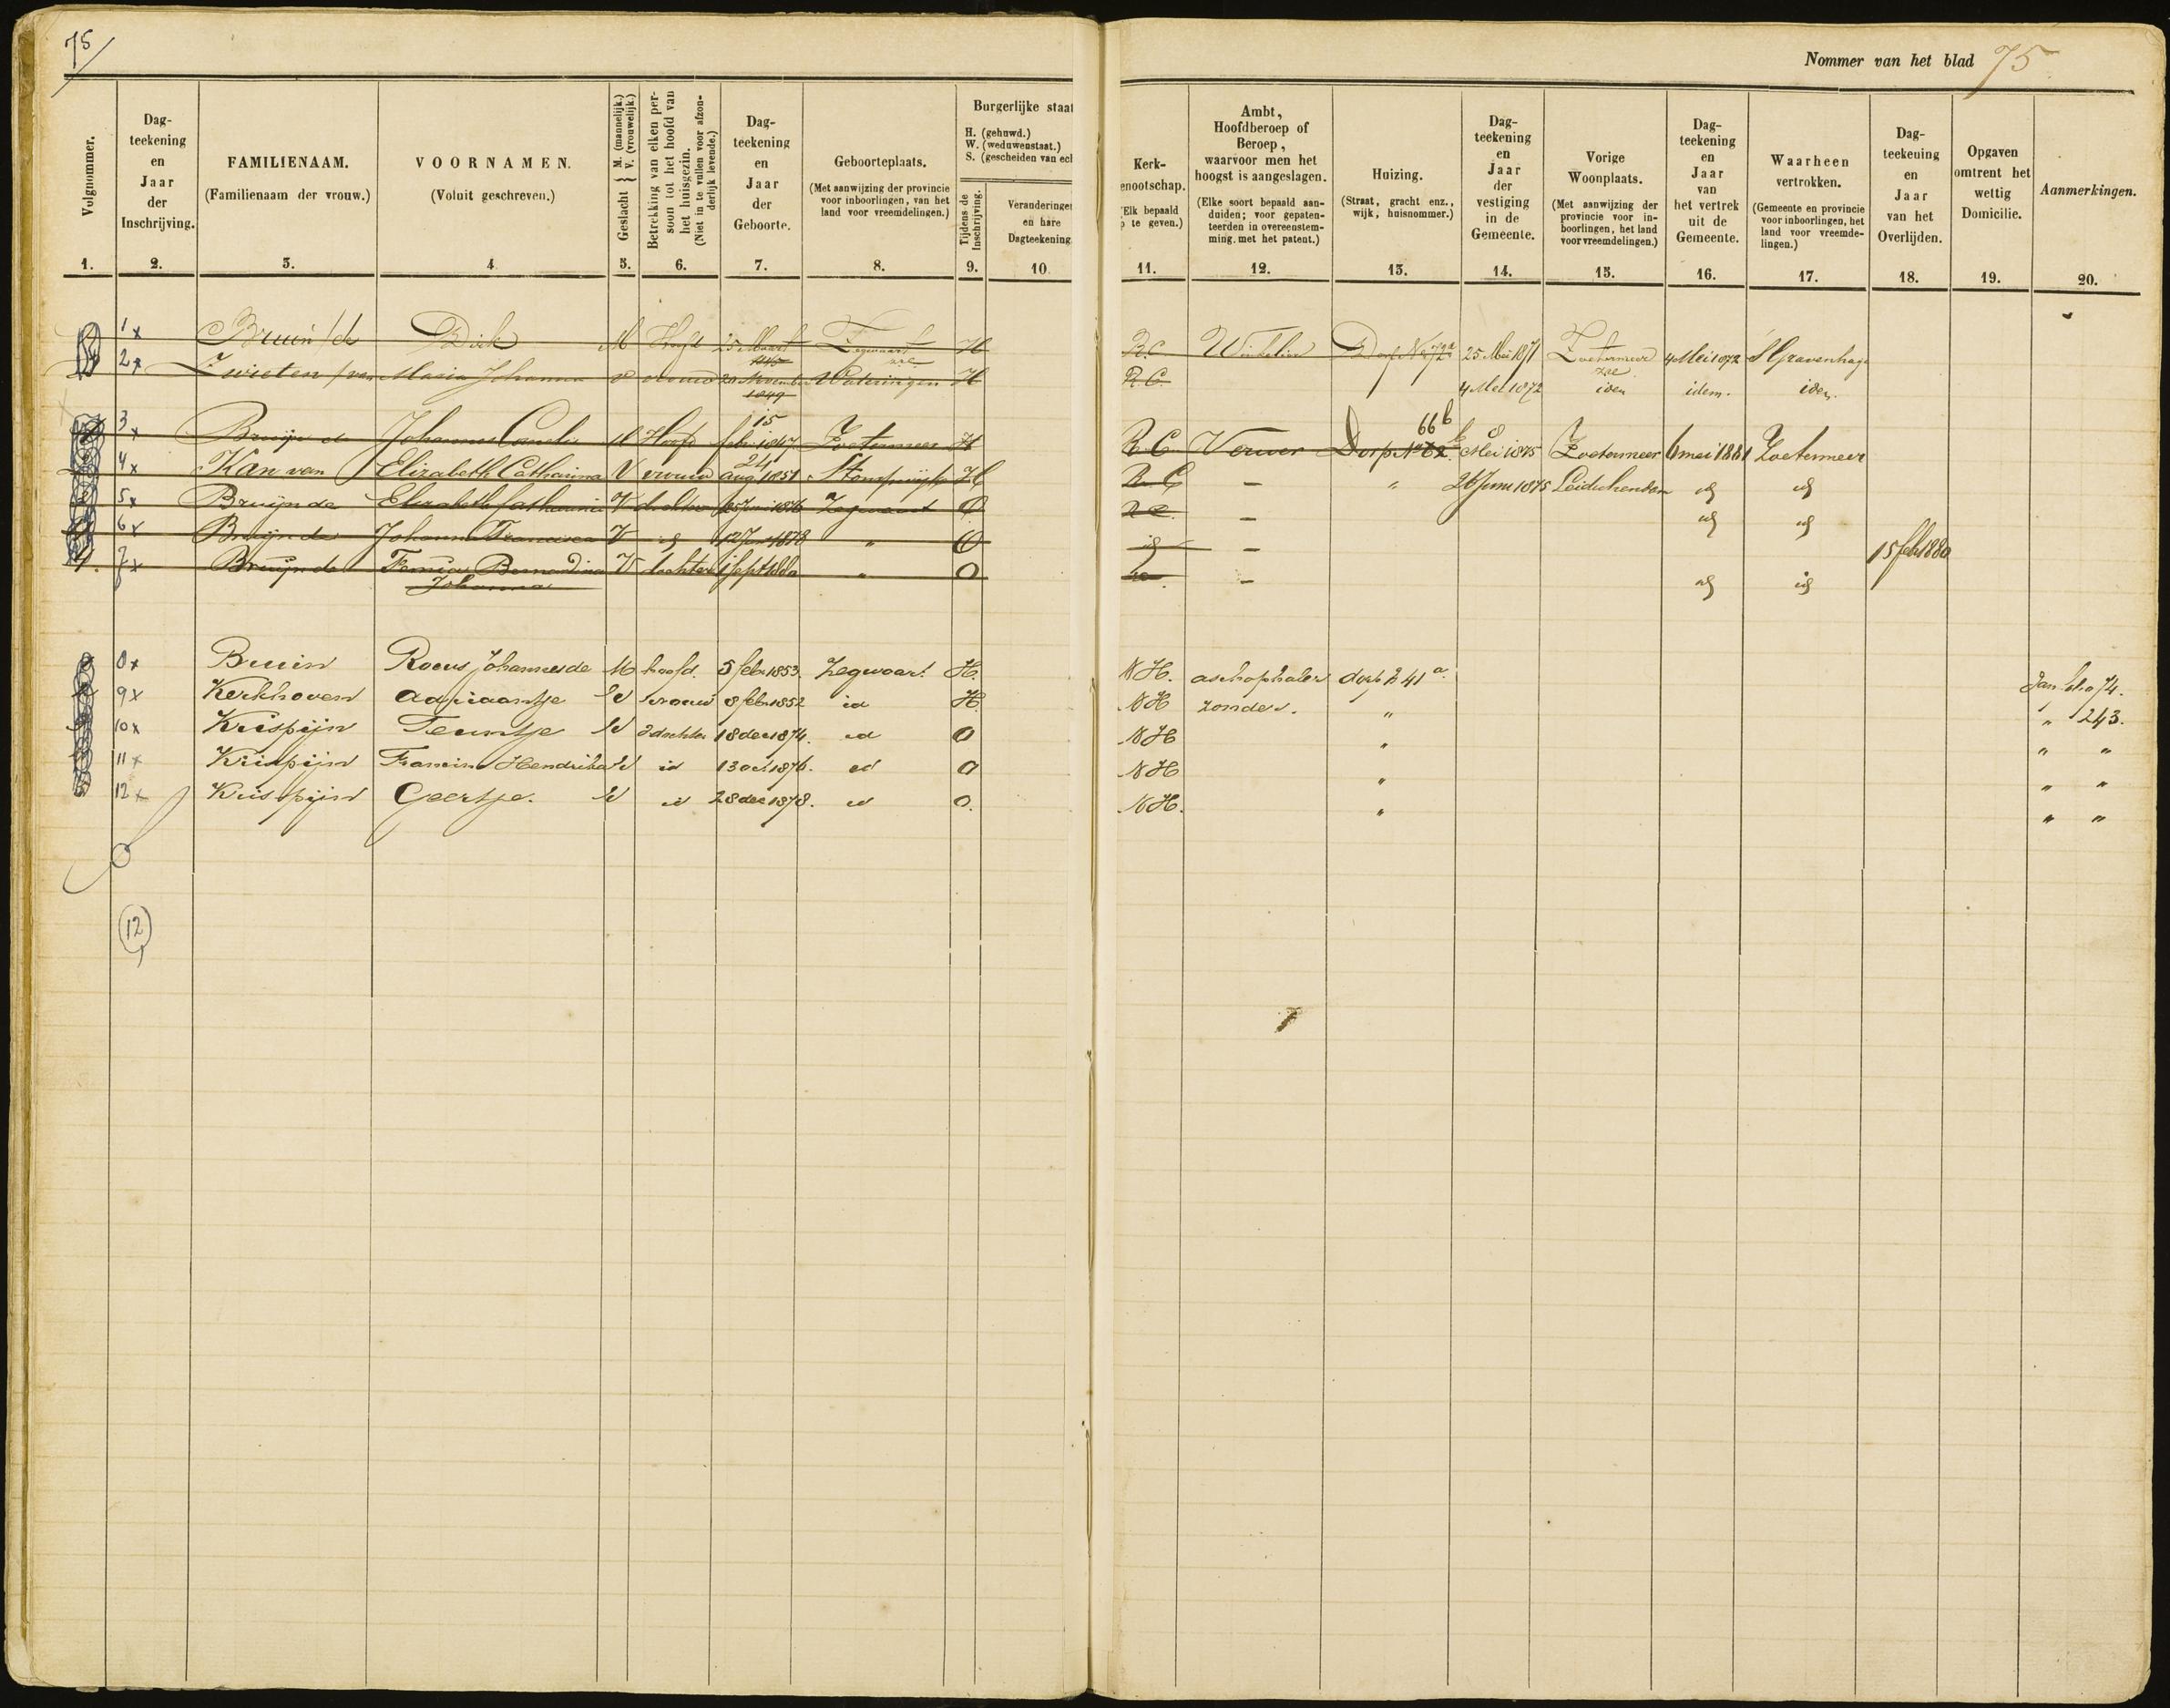 75
Nommer van het blad 75
Volgnommer.
Dag-
teekening
en
Jaar
der
Inschrijving.
FAMILIENAAM.
(Familienaam der vrouw.)
VOORNAMEN.
(Voluit geschreven.)
Geslacht } M. (mannelijk.) V. (vrouwelijk.)
Betrekking van elken per-
soon tot het hoofd van
het huisgezin.
(Niet in te vullen voor afzon-
derlijk levende.)
Dag-
teekening
en
Jaar
der
Geboorte.
Geboorteplaats.
(Met aanwijzing der provincie
voor inboorlingen, van het
land voor vreemdelingen.)
Burgerlijke staat
H. (gehuwd.)
W. (weduwenstaat.)
S. (gescheiden van ech
Tijdens de
Inschrijving.
Veranderingen
en hare
Dagteekening
Kerk-
enootschap.
Elk bepaald
p te geven.)
Ambt,
Hoofdberoep of
Beroep,
waarvoor men het
hoogst is aangeslagen.
(Elke soort bepaald aan-
duiden; voor gepaten-
teerden in overeenstem-
ming met het patent.)
Huizing.
(Straat, gracht enz.,
wijk, huisnommer.)
Dag-
teekening
en
Jaar
der
vestiging
in de
Gemeente.
Vorige
Woonplaats.
(Met aanwijzing der
provincie voor in-
boorlingen, het land
voor vreemdelingen.)
Dag-
teekening
en
Jaar
van
het vertrek
uit de
Gemeente.
Waarheen
vertrokken.
(Gemeente en provincie
voor inboorlingen, het
land voor vreemde-
lingen.)
Dag-
teekening
en
Jaar
van het
Overlijden.
Opgaven
omtrent het
wettig
Domicilie.
Aanmerkingen.
1. 2. 3. 4 5. 6. 7. 8. 9. 10. 11. 12. 13. 14. 15. 16. 17. 18. 19. 20.
1x Bruin de Dirk M Hoofd 25 Maart 1845 Zegwaart H R.C. Winkelier Dorp 25 Mei 1871 Zoetermeer 4 Mei 1872 s'Gravenhage
2x Zwieten van Maria Johanna V vrouw 20 November 1849 Wateringen H R.C. 4 Mei 1872 idem idem. idem.
3x Bruijn de Johannes Cornelis M Hoofd 15 feb 1847 Zoetermeer H R.C. Verwer Dorp 66b 8 Mei 1875 Zoetermeer 6 mei 1881 Zoetermeer
4x Kan van Elizabeth Catharina V vrouw 24 aug 1851 Stompwijk H R.C. — " 26 Juni 1875 Leidschendam id id
5x Bruijn de Elizabeth Catharina V dochter 25 Juni 1876 Zegwaart O R.C. — id id
6x Bruijn de Johanna Francisca V id 12 Jan 1878 " O id — 15 feb 1880
7x Bruijn de Bernardina Johanna V dochter 1 sept 1880 " O — id id
8x Bruin Rocus Johannes de M hoofd. 5 febr 1853. Zegwaart H. N H. aschophaler dorp 241a.
9x Kerkhoven Adriaantje V vrouw 8 febr 1852 id H. N H zonder. " " 243.
10x Krispijn Teuntje V dochter 18 dec 1874. id O N H " " "
11x Krispijn Francina Hendrika V id 13 oct 1876. id O N H " " "
12x Krispijn Geertje. V id 28 dec 1878. id O. N H. " " "
12